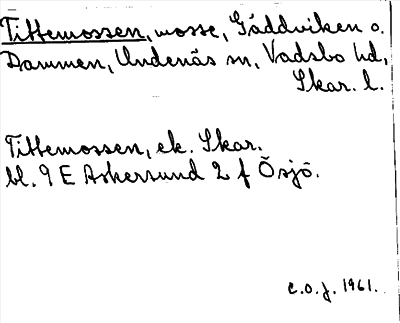 Tittemossen, mosse, Gäddviken o.
Dammen, Undenäs sn, Vadsbo hd,
Skar. l.
Tittemossen, ek. Skar.
bl. 9 E Askersund 2 f Ösjö.
C.O.J. 1961.